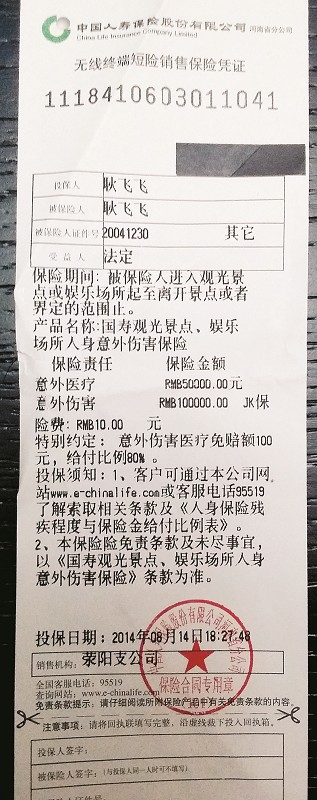 中国人寿保险股份有限公司 河南省分公司
China Life Insurance Company Limited
无线终端短险销售保险凭证
1118410603011041
投保人 耿飞飞
被保险人 耿飞飞
被保险人证件号 20041230 其它
受益人 法定
保险期间: 被保险人进入观光景
点或娱乐场所起至离开景点或者
界定的范围止。
产品名称:国寿观光景点、娱乐
场所人身意外伤害保险
保险责任 保险金额
意外医疗 RMB50000.00元
意外伤害 RMB100000.00 JK保
险费: RMB10.00 元
特别约定: 意外伤害医疗免赔额100
元，给付比例80% 。
投保须知: 1、客户可通过本公司网
站www.e-chinalife.com或客服电话95519
了解索取相关条款及《人身保险残
疾程度与保险金给付比例表》。
2、本保险险免责条款及未尽事宜，
以《国寿观光景点、娱乐场所人身
意外伤害保险》条款为准。
投保日期: 2014年08月14日18:27:48
销售机构: 荥阳支公司
保险合同专用章
全国客服电话: 95519
查询网站: www.e-chinalife.com
免责条款提示: 请仔细阅读所附保险产品中有关免责条款的内容。
注意事项: 请将回执联填写完整，沿虚线裁下投入回执箱。
投保人签字:
被保险人签字: (与投保人同一人时可不填写)